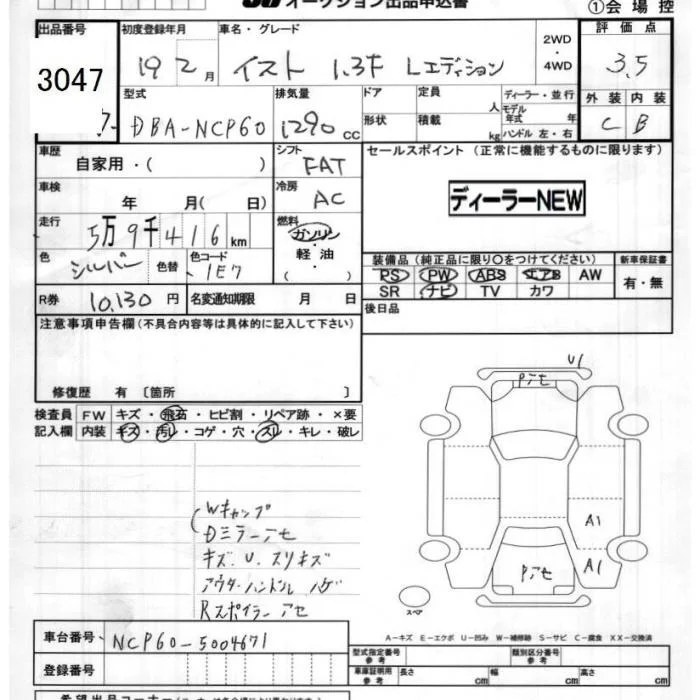 オークション出品申込書
①会場控
出品番号 初度登録年月 車名・グレード 評価点
3047 19 2月 イスト 1.3F Lエディション 2WD・4WD 3.5
型式 排気量 ドア 定員 人 ディーラー・並行 外装 内装
DBA-NCP60 1290 cc 形状 積載 kg モデル年式 年 ハンドル 左・右 C B
車歴 自家用・( ) シフト FAT セールスポイント (正常に機能するものに限ります)
車検 年 月( 日) 冷房 AC ディーラーNEW
走行 5万9千416km 燃料 ガソリン・軽油・
色 シルバー 色替 色コード 1E7
装備品 (純正品に限り○をつけてください) 新車保証書
PS PW ABS エアB AW 有・無
SR ナビ TV カワ
R券 10,130円 名変通知期限 月 日 後日品
注意事項申告欄 (不具合内容等は具体的に記入して下さい)
修復歴 有 〔箇所 〕
検査員記入欄 FW キズ・飛石・ヒビ割・リペア跡・×要
内装 キズ・汚レ・コゲ・穴・スレ・キレ・破レ
U1
Pアセ
A1
A1
Pアセ
スペア
Wキャップ
Dミラーアセ
キズ、U、スリキズ
アウターハンドル ハゲ
Rスポイラーアセ
A-キズ E-エクボ U-凹み W-補修跡 S-サビ C-腐食 XX-交換済
車台番号 NCP60-5004671
型式指定番号 参考 類別区分番号 参考
登録番号 車庫証明用 参考 長さ cm 幅 cm 高さ cm
希望出品コーナー